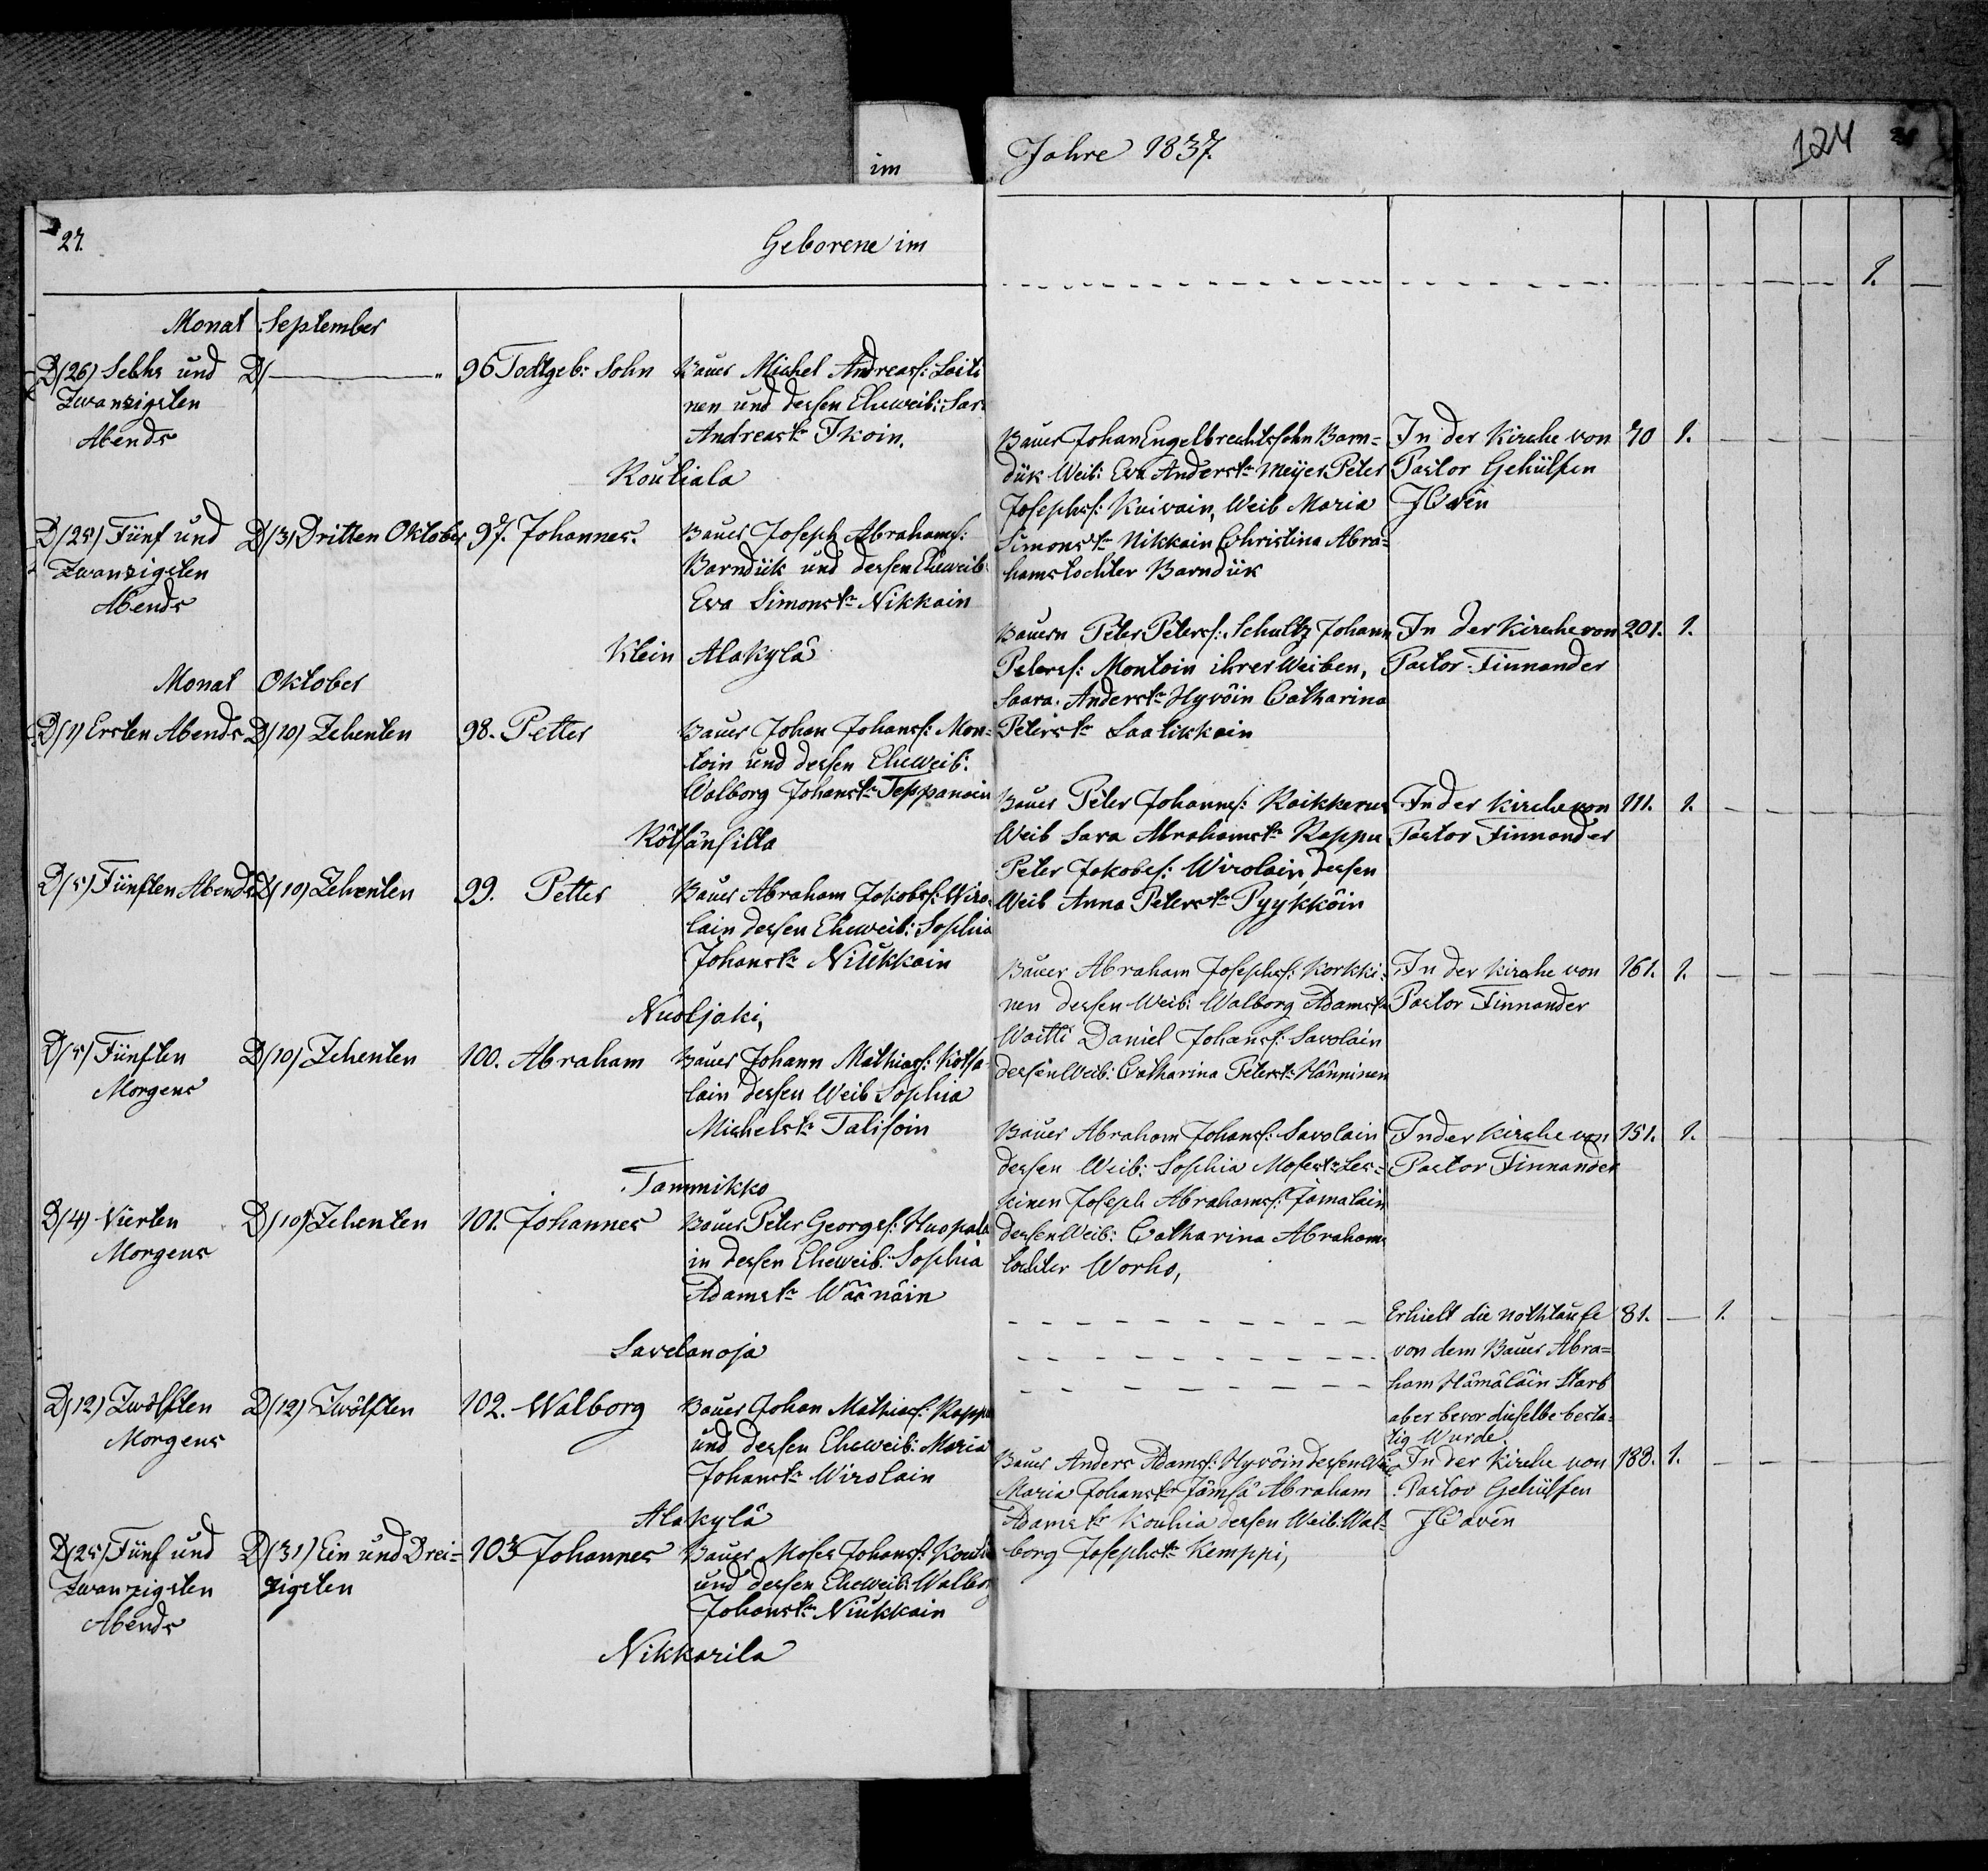 im
Jahre 1837.
124
27.
Geborene im
Monat September
D/26) Sechs und D/ 96 Todtgeb: Sohn Bauer Michel Andreass: Loiti
Zwanzigsten nen und dessen Eheweib: Sar.
Abends Andreast. Ikoin.
Koutiala
D/25) Fünf und D/3) Dritten Oktober 97. Johannes. Bauer Joseph Abrahams:
Zwanzigsten Barndük und dessen Eheweib:
Abends Eva Simonst. Nikkain
Klein Alakylä
Monat Oktober
D/1) Ersten Abends D/10) Zehenten 98. Petter Bauer Johan Johanss: Mon=
toin und dessen Eheweib:
Walborg Johanst. Teppanain
Kötsänsilla
D/5) Fünften Abends D/10) Zehenten 99. Petter Bauer Abraham Jakobss: Wiro
lain dessen Eheweib: Sophia
Johanst. Niukkain
Nuoljaki,
D/5) Fünften D/10) Zehenten 100. Abraham Bauer Johann Mathiass: Kotsa
Morgens lain dessen Weib Sophia
Michelst. Talisoin
Tammikko
D/4) Vierten D/10) Zehenten 101. Johannes Bauer Peter Georgs: Huopala
Morgens in dessen Eheweib: Sophia
Adamst. Wäänäin
Savelanoja
D/12) Zwölften D/12) Zwölften 102. Walborg Bauer Johan Mathiass: Rappu
Morgens und dessen Eheweib: Maria
Johanst. Wirolain
Alakylä
D/25) Fünf und D/31) Ein und Drei= 103 Johannes Bauer Moses Johanss: Kouhi
Zwanzigsten zigsten und dessen Eheweib: Walborg
Abends Johanst. Niukkain
Nikkarila
1.
Bauer Johan Engelbrechtssohn Barn= In der Kirche von 70 1.
dük Weib: Eva Anderst. Meyer Peter Pastor Gehülfen
Josephss: Kuivain, Weib Maria JCavén
Simonst. Nikkain Christina Abra=
hamstochter Barndük
Bauern Peter Peterss: Schultz Johann In der Kirche von 201. 1.
Peterss: Montoin ihrer Weiben, Pastor Finnander
Saara. Anderst. Hyvöin Catharina
Peterst. Laatikkain
Bauer Peter Johanness: Raikkerus In der Kirche von 111. 1.
Weib Sara Abrahamst. Rappu Pastor Finnander
Peter Jakobss: Wirolain, dessen
Weib Anna Peterst. Pyykköin
Bauer Abraham Josephss: Korkki= In der Kirche von 161. 1.
nen dessen Weib: Walborg Adamst. Pastor Finnander
Waitti Daniel Johanss: Savolain
dessen Weib: Catharina Peterst. Hänninen
Bauer Abraham Johanss: Savolain In der Kirche von 151. 1.
dessen Weib: Sophia Mosest. Les= Pastor Finnander
kinen Joseph Abrahamss: Jämäläin
dessen Weib: Catharina Abrahams
tochter Worho,
Erhielt die Nothtaufe 81. 1.
von dem Bauer Abra=
ham Hämäläin Starb
aber bevor dieselbe besta=
tig Wurde.
Bauer Anders Adamss: Hyvöin dessen Weib In der Kirche von 188. 1.
Maria Johanst. Jämsä Abraham Pastor Gehülfen
Adamst. Kouhia dessen Weib: Wal= JCavén
borg Josephst. Kemppi,